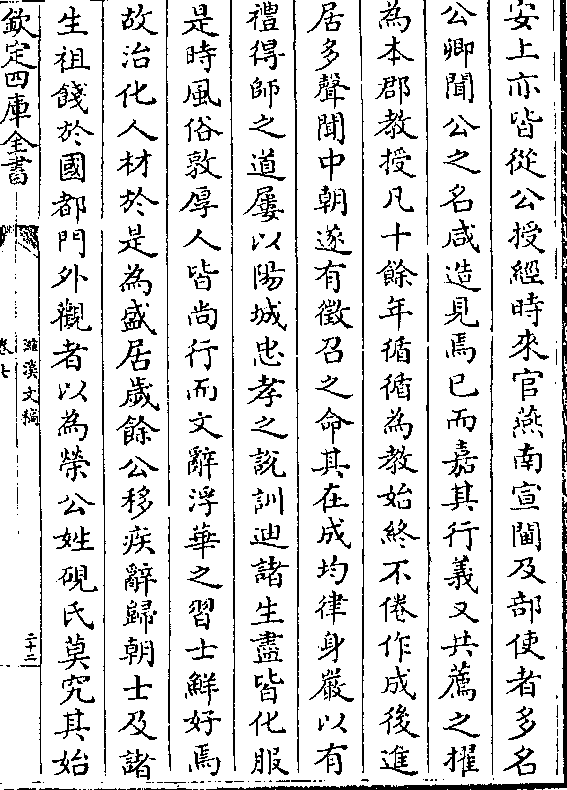 安上亦皆從公授經時來官燕南宣閫及部使者多名
公卿聞公之名咸造見焉已而嘉其行義又共薦之擢
為本郡教授凡十餘年循循為教始終不倦作成後進
居多聲聞中朝遂有徵召之命其在成均律身嚴以有
禮得師之道屢以陽城忠孝之説訓迪諸生盡皆化服
是時風俗敦厚人皆尚行而文辭浮華之習士鮮好焉
故治化人材於是為盛居歲餘公移疾辭歸朝士及諸
生祖餞於國都門外觀者以為榮公姓硯氏莫究其始
欽定四庫全書
滋溪文稿
卷七
二十二